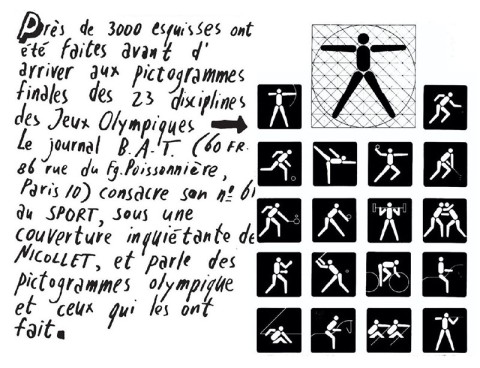 Près de 3000 esquisses ont
été faites avant d'
arriver aux pictogrammes
finales des 23 disciplines
des Jeux Olympiques
Le journal B.A.T. (60 FR.
86 rue du Fg. Poissonnière,
Paris 10) consacre son nº 61
au SPORT, sous une
couverture inquiétante de
NICOLLET, et parle des
pictogrammes olympique
et ceux qui les ont
fait.